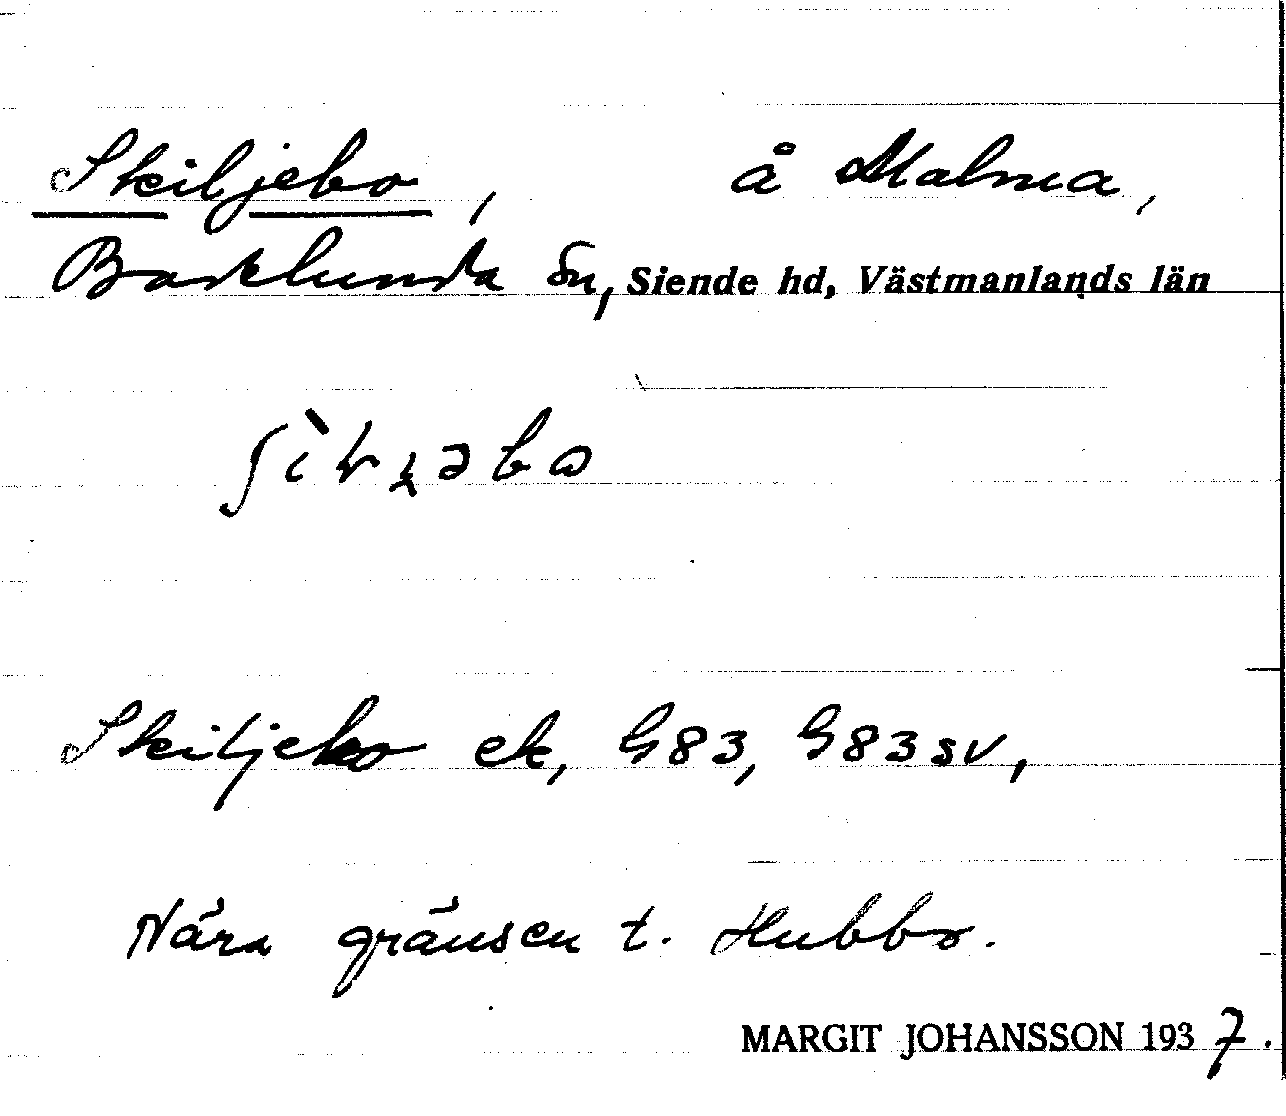 Skiljebo, å Malma,
Badelunda sn, Siende hd, Västmanlands län
Skiljebo ek, G83, G83sv,
Nära gränsen t. Hubbo.
MARGIT JOHANSSON 1937.